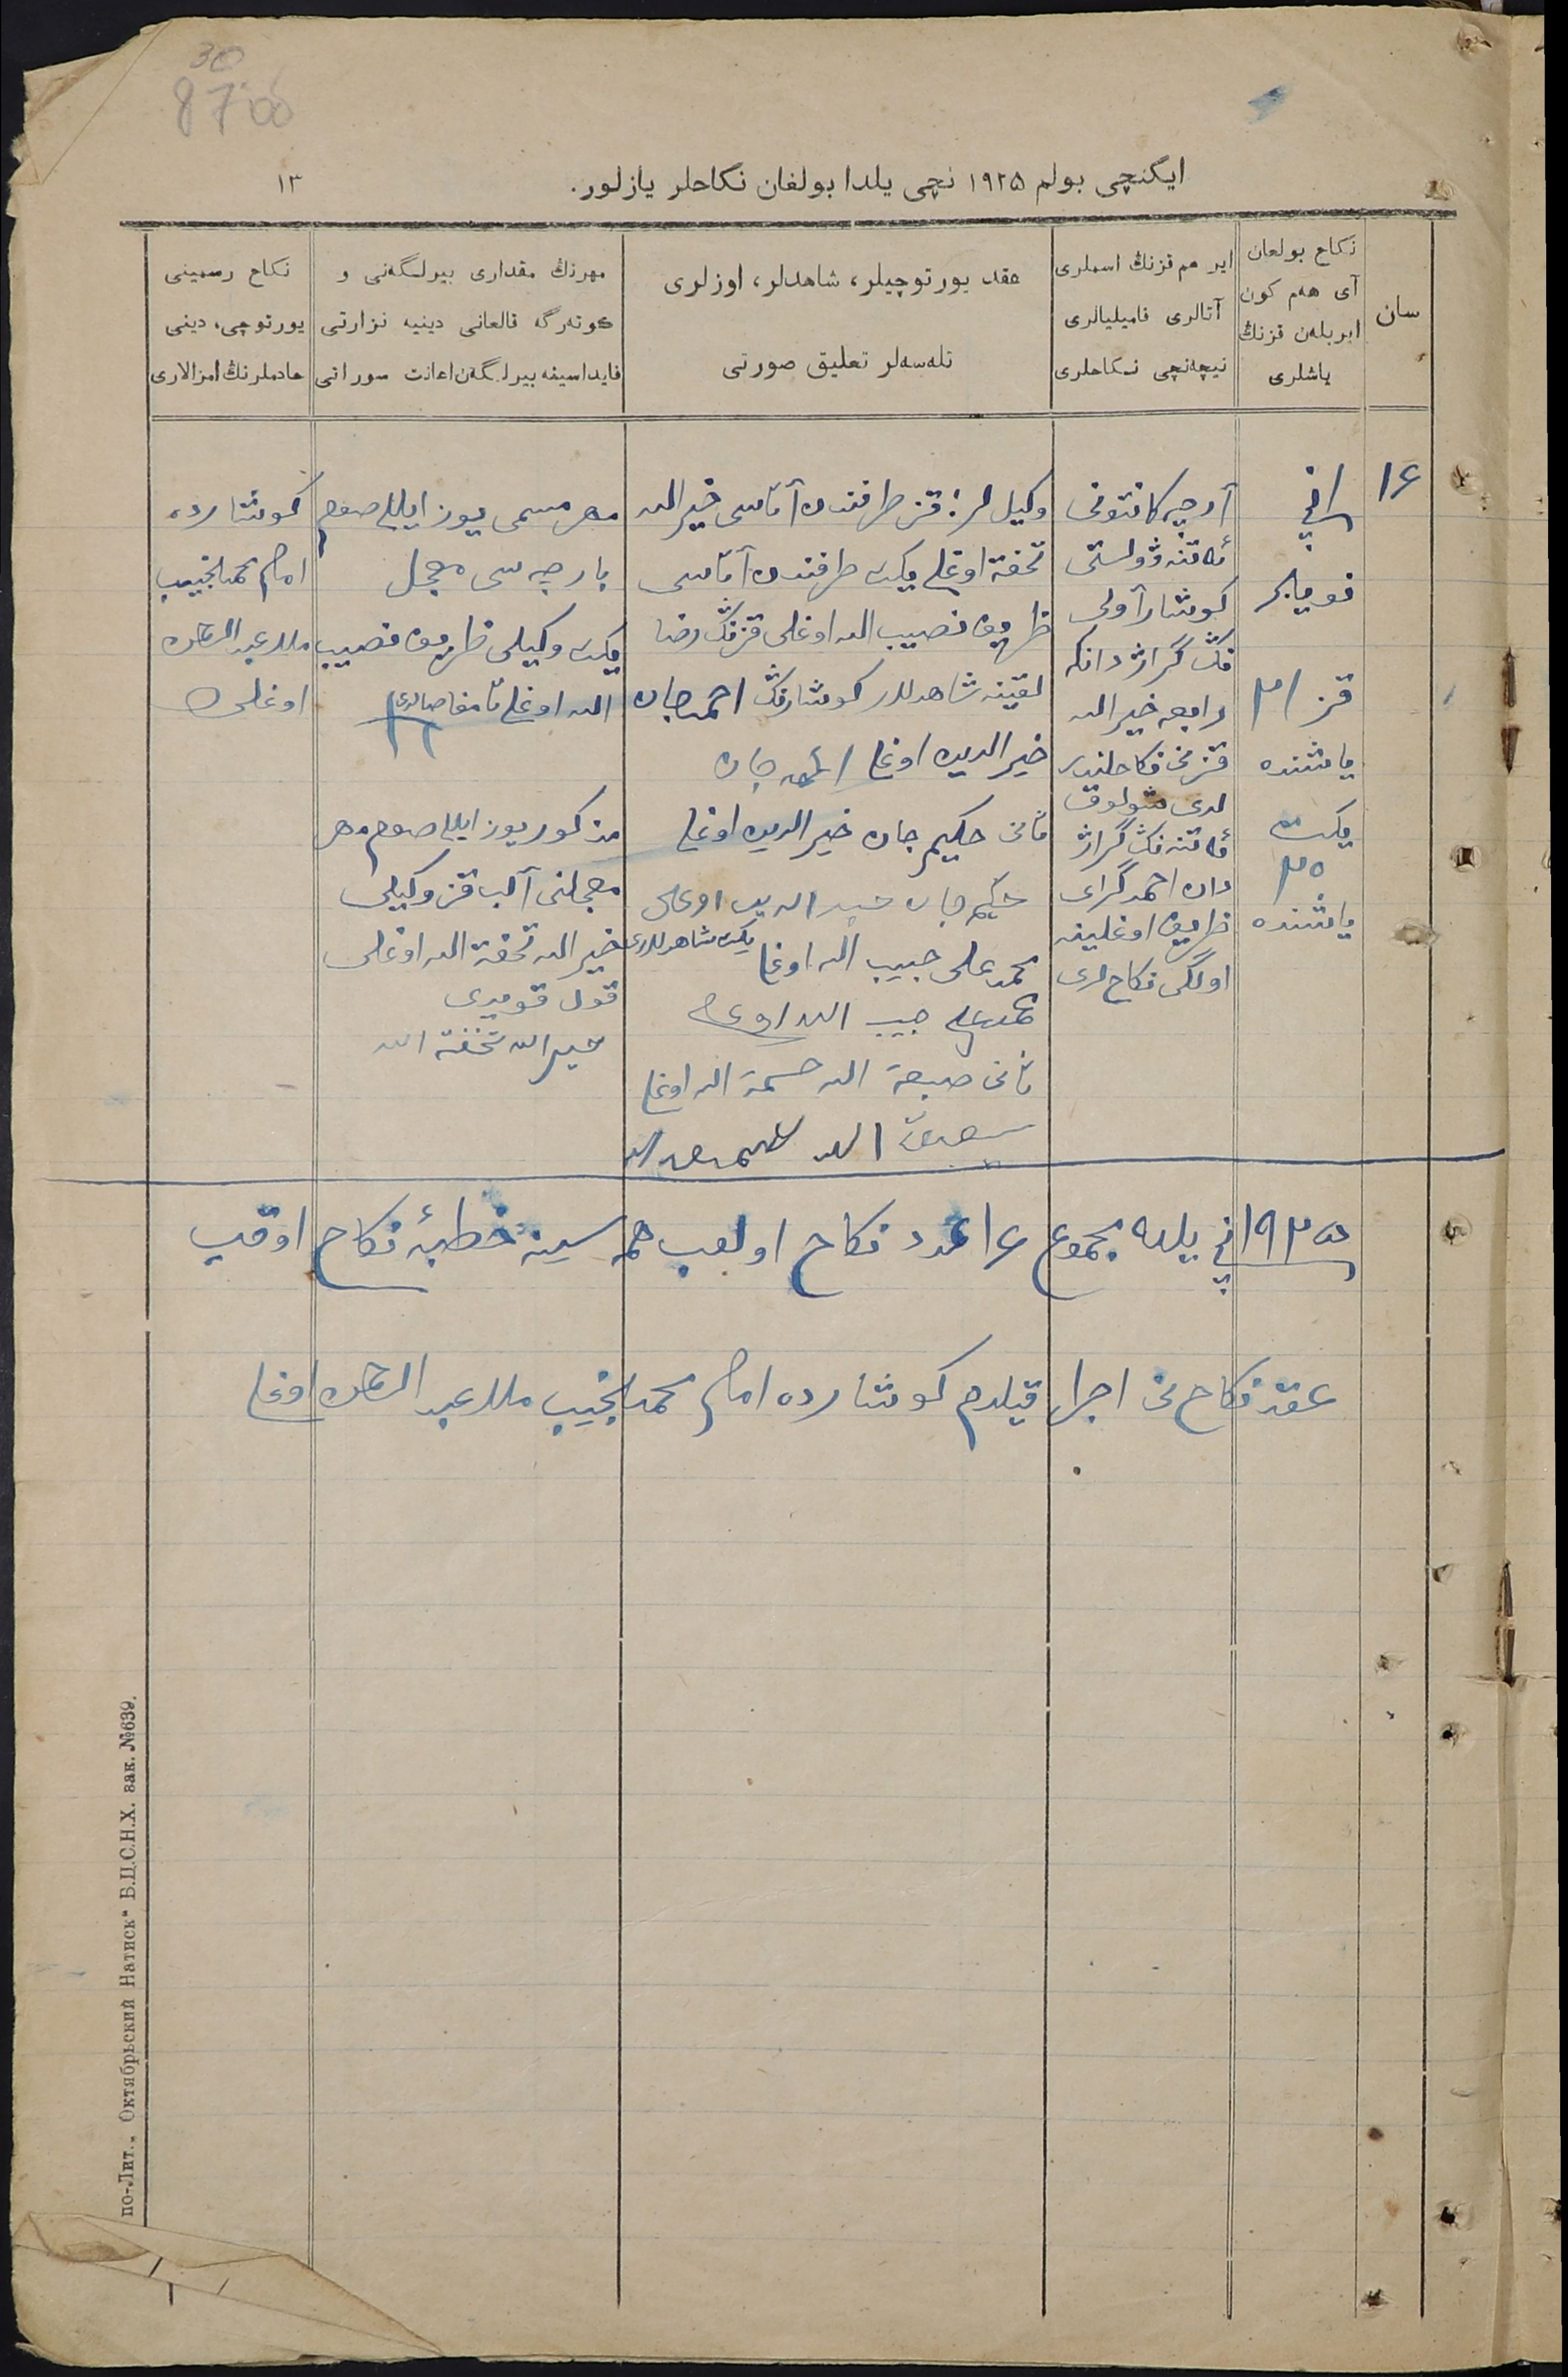 30
8700
ایگنچی بولم ۱۹۲۵ نچی یلدا بولغان نکاحلر یازلور.
۱۳
سان
نکاح بولغان
آی هەم کون
ایر بلەن قزنڭ
یاشلری
ایر هم قزنڭ اسملری
آتالری فامیلیالری
نیچەنچی نکاحلری
عقد یورتوچیلر، شاهدلر، اوزلری
تلەسەلر تعلیق صورتی
مهرنڭ مقداری بیرلگەنی و
کوتەرگە قالغانی دینیە نزارتی
فایداسینە بیرلگەن اعانت سوراتی
نکاح رسمینی
یورتوچی، دینی
خادملرنڭ امزالاری
۱۶
۱ نچی
نویابر
قز ۲۱
یاشنده
یکت
۲۵
یاشنده
آرچە کانتونی
ئەتنە وولستی
کوشار آولی
رابعە خیر الله
قزنی نکاحلندر
لری شولوق
احمد گرای
ظریف اوغلینە
اولگی نکاحلری
وکیللر: قز طرفندن آتاسی خیر الله
تحفة اوغلی یکت طرفندن آتاسی
ظریف نصیب الله اوغلی قزنڭ رضا
لقینە شاهدلر کوشارنڭ احمدجان
خیر الدین اوغلی
ثانی حکیم جان خیر الدین اوغلی
حکیم جان خیر الدین اوغلی
یکت شاهدلری
محمد علی حبیب الله اوغلی
محمد علی حبیب الله اوغلی
ثانی صبغة الله حسمة الله اوغلی
مهر مسمی یوز ایللی صوم
بارچە سی معجل
یکت وکیلی ظریف نصیب
الله اوغلی
مذکور یوز ایللی صوم مهر
معجلنی آلب قز وکیلی
خیر الله تحفة الله اوغلی
قول قویدی
خیر الله تحفة الله
کوشارده
امام محمد نجیب
ملا عبد الرحمن
اوغلی
۱۹۲۵ نچی یلده مجموع ۱۶ عدد نکاح اولوب همه سینه خطبۀ نکاح اوقب
عقد نکاح نی اجرا قیلدم کوشارده امام محمد نجیب ملا عبد الرحمن اوغلی
по-Лит. „Октябрьский Натиск“ Б.Ц.С.Н.Х. зак. №639.